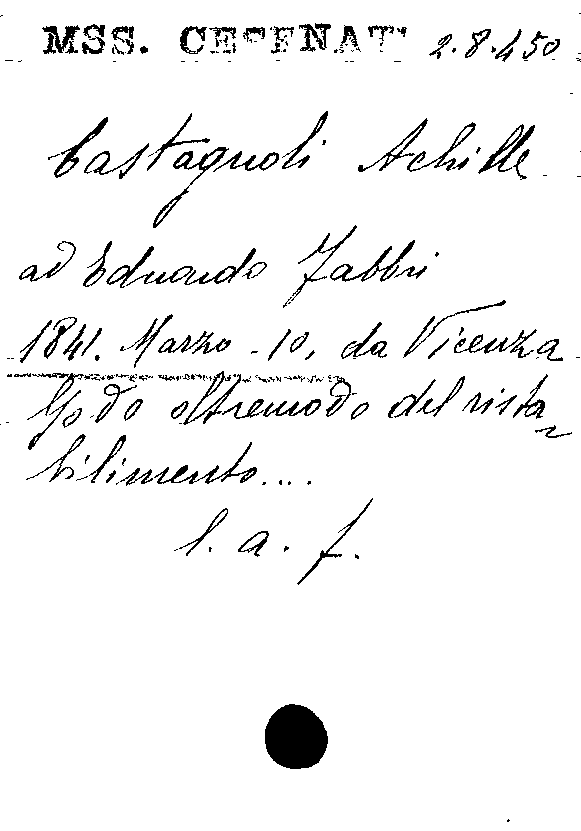 MSS. CESENATI 2.8.450
Castagnoli Achille
ad Eduardo Fabbri
1841. Marzo 10, da Vicenza
Godo oltremodo del rista
bilimento....
l. a. f.